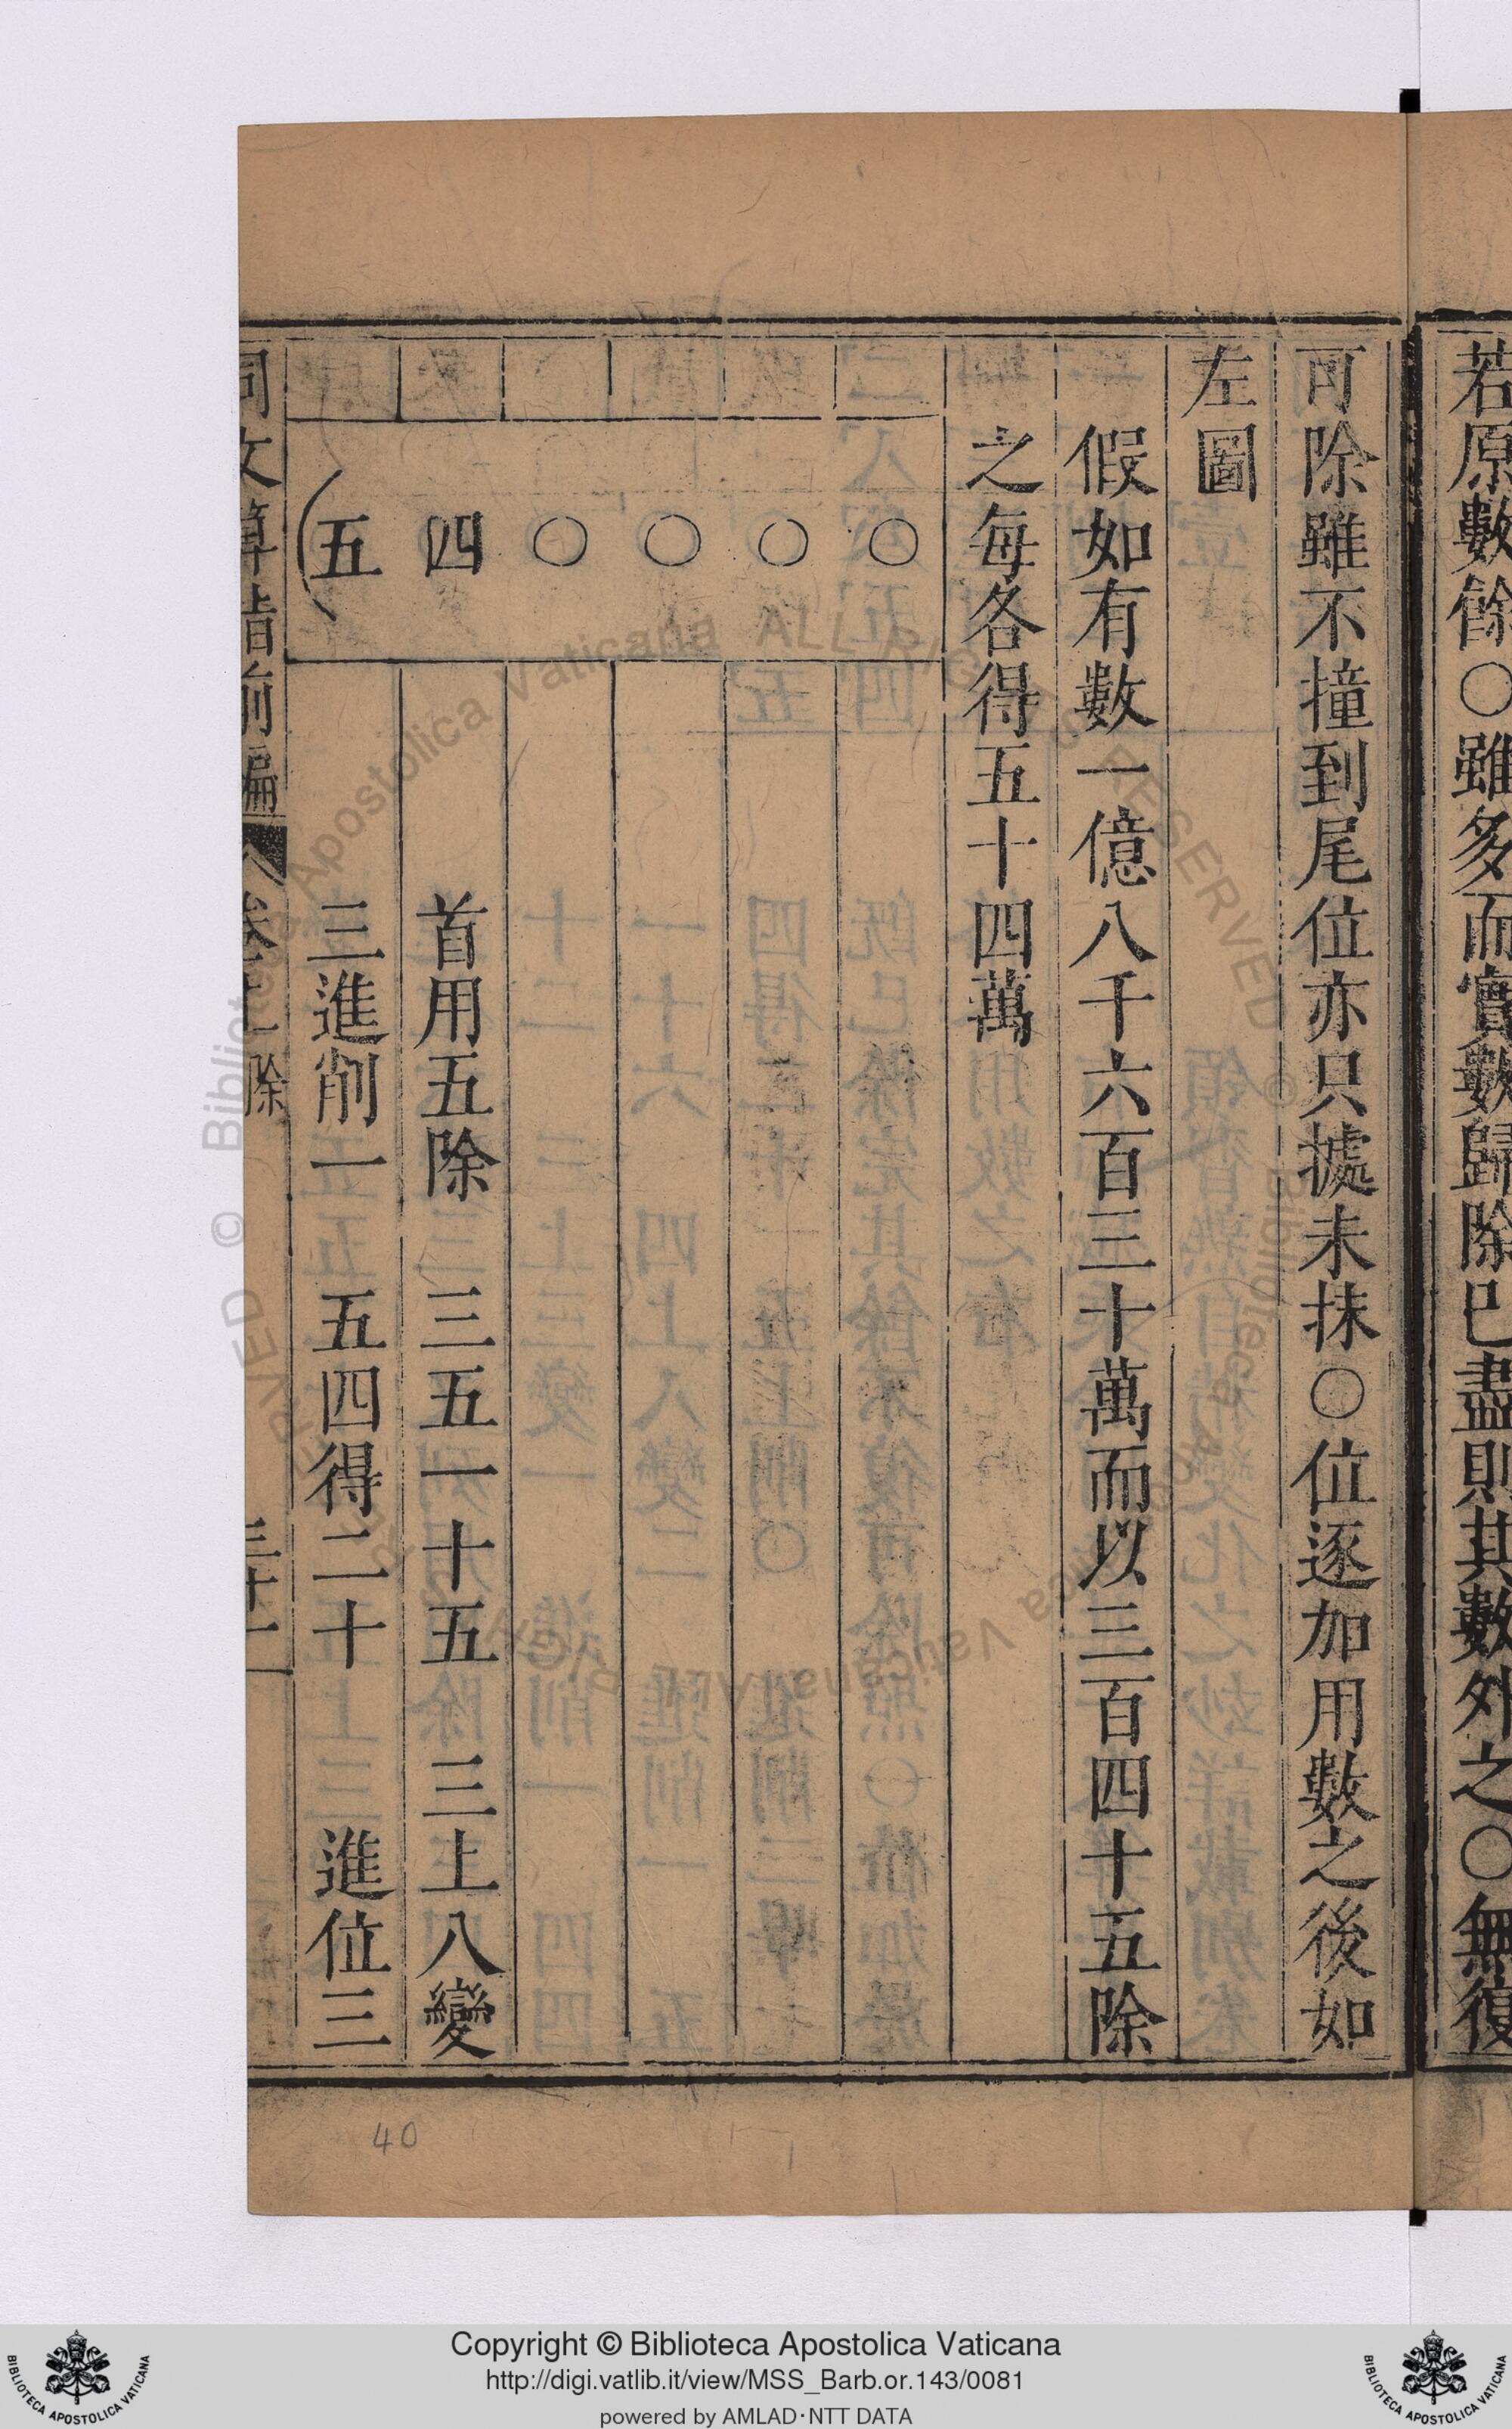 若原數餘○雖多而實數歸除已盡則其數外之○無復
可除雖不撞到尾位亦只據未抹○位逐加用數之後如
左圖
假如有數一億八千六百三十萬而以三百四十五除
之每各得五十四萬
○
○
○
○
四
首用五除 三五一十五 三上八變
(五
三進削一 五四得二十 進位三
同文算指前編 卷 除 三十一
40
© Biblioteca Apostolica Vaticana ALL RIGHTS RESERVED © Biblioteca Apostolica Vaticana ALL RIGHTS RESERVED
BIBLIOTECA APOSTOLICA VATICANA
Copyright © Biblioteca Apostolica Vaticana
http://digi.vatlib.it/view/MSS_Barb.or.143/0081
powered by AMLAD·NTT DATA
BIBLIOTECA APOSTOLICA VATICANA